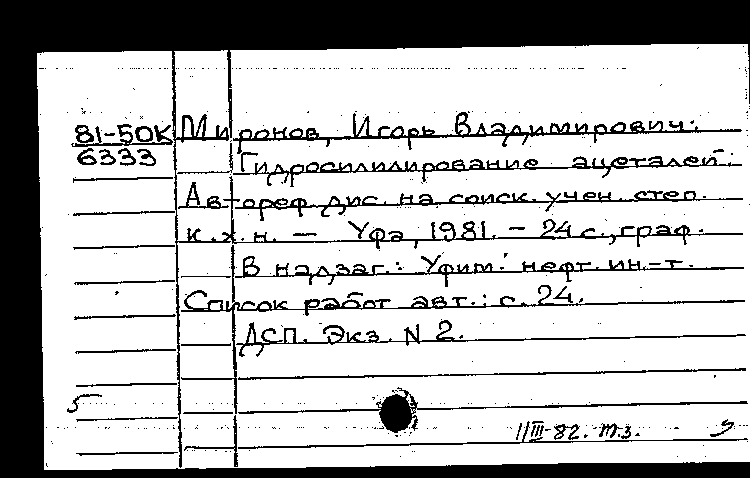 81-50К Миронов, Игорь Владимирович:
6333 Гидросилилирование ацеталей:
Автореф. дис. на соиск. учен. степ.
к.х.н. — Уфа, 1981. - 24 с., граф.
В надзаг.: Уфим. нефт. ин-т.
Список работ авт.: с. 24.
ДСП. Экз. N 2.
5
11/III-82. т.з.